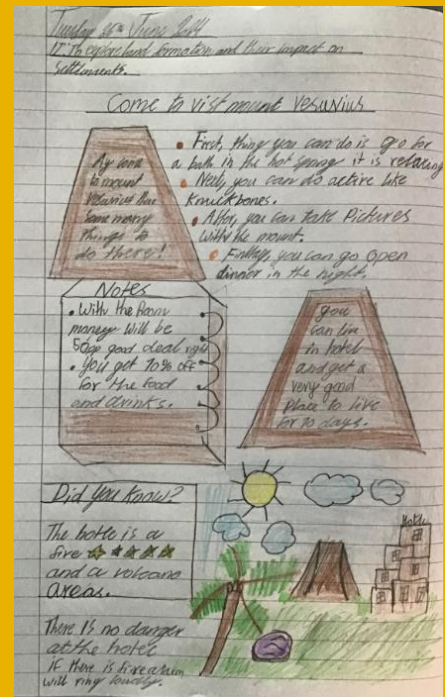 Tuesday 25th June 2024
IT To explore land formation and their impact on
settlements.
Come to visit mount vesuvius
come
to mount
Vesuvius
some many
things to
do there!
First, thing you can do is go for
a bath in the hot it is relaxing
Next, you can do active like
knuckbones.
After, you can take Pictures
with the mount.
Finally, you can go open
dinner in the night.
Notes
With the Room
money will be
good deal right
You get 70% off
for the food
and drinks.
you
can live
in hotel
and get a
very good
place to live
for days.
Did you know?
The hotle is a
five
and a volcano
areas.
There is no danger
at the hotel
if there is fire alarm
will ring loudly.
Hotle